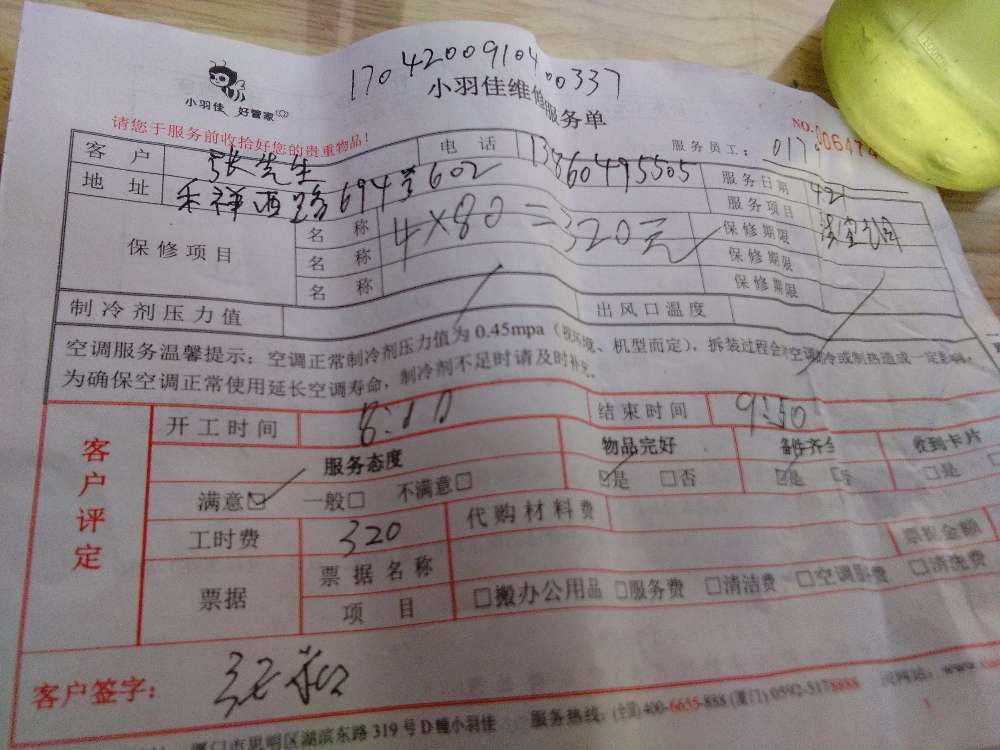 1704200910400337
小羽佳 好管家
小羽佳维修服务单
请您于服务前收拾好您的贵重物品!
NO. 00647
服务员工: 017
客户 张先生 电话 13860495505 服务日期 421
地址 禾祥西路694号602 服务项目
保修项目 名称 4×80=320元 保修期限
名称 保修期限
名称 保修期限
制冷剂压力值 出风口温度
空调服务温馨提示:空调正常制冷剂压力值为0.45mpa(视环境、机型而定),拆装过程会对空调制冷或制热造成一定影响,
为确保空调正常使用延长空调寿命,制冷剂不足时请及时补充。
客户评定
开工时间 8:10 结束时间 9:50
服务态度 物品完好 备件齐全 收到卡片
满意☑ 一般□ 不满意□ ☑是 □否 ☑是 □否 □是
工时费 320 代购材料费 票据金额
票据 票据名称
项目 □搬办公用品 □服务费 □清洁费 □空调影费 □清洗费
客户签字:
厦门市思明区湖滨东路319号D幢小羽佳 服务热线:(全国)400-6655-888 (厦门)0592-5178888